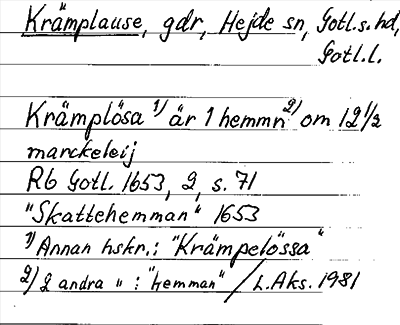 Krämplause, gdr, Hejde sn, Gotl.s.hd,
Gotl.l.
Krämplösa 1) är 1 hemmn 2) om 12 1/2
marckeleij
Rb Gotl. 1653, 2, s. 71
"Skattehemman" 1653
1) Annan hskr.: "Krämpelössa"
2) 2 andra " : "hemman" / L.Aks. 1981